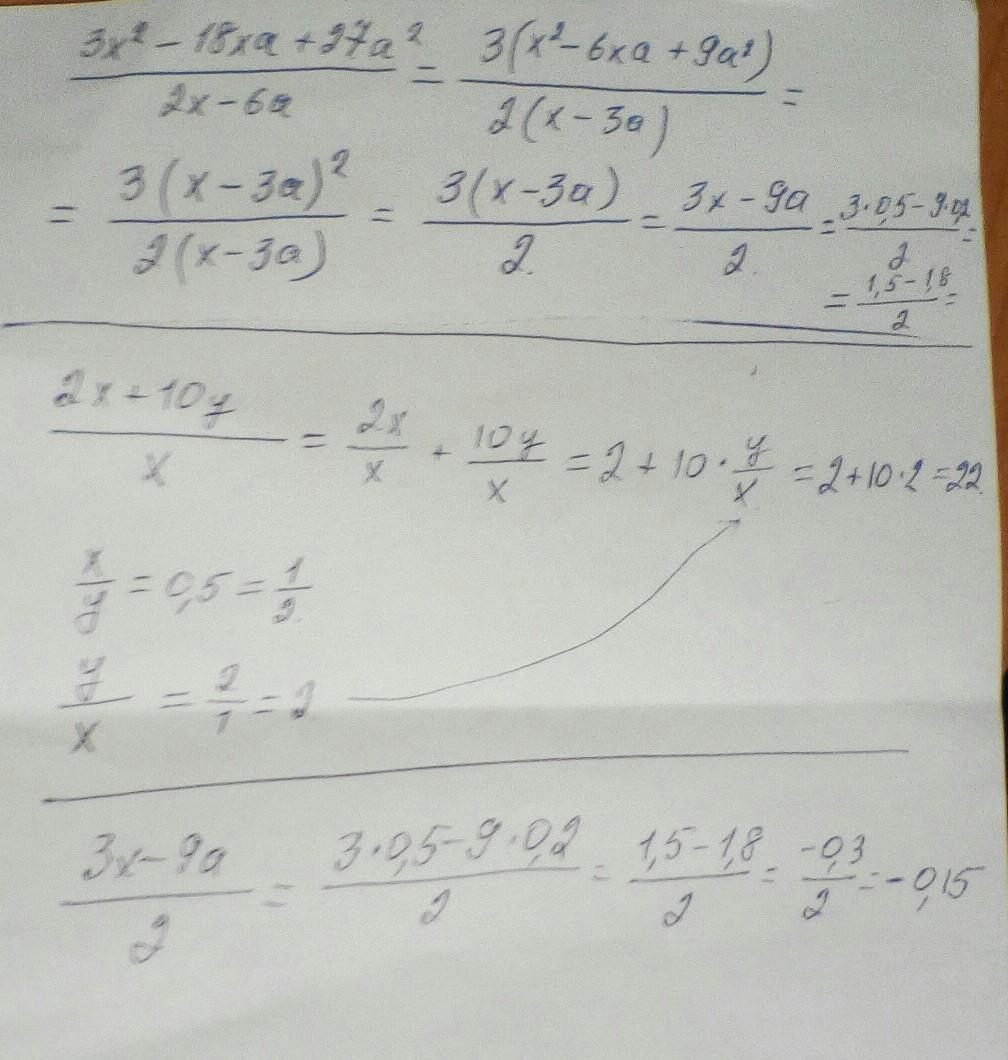 (3x² - 18xa + 27a²)/(2x - 6a) = 3(x² - 6xa + 9a²)/2(x - 3a) =
= 3(x - 3a)²/2(x - 3a) = 3(x - 3a)/2 = (3x - 9a)/2 = (3·0,5 - 9·0,2)/2 =
= (1,5 - 1,8)/2 =
(2x + 10y)/x = 2x/x + 10y/x = 2 + 10 · y/x = 2 + 10·2 = 22
x/y = 0,5 = 1/2
y/x = 2/1 = 2
(3x - 9a)/2 = (3·0,5 - 9·0,2)/2 = (1,5 - 1,8)/2 = -0,3/2 = -0,15